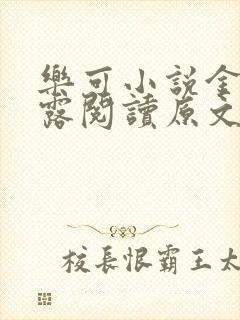 樂可小說金
露閱讀原文
校長恨霸王太